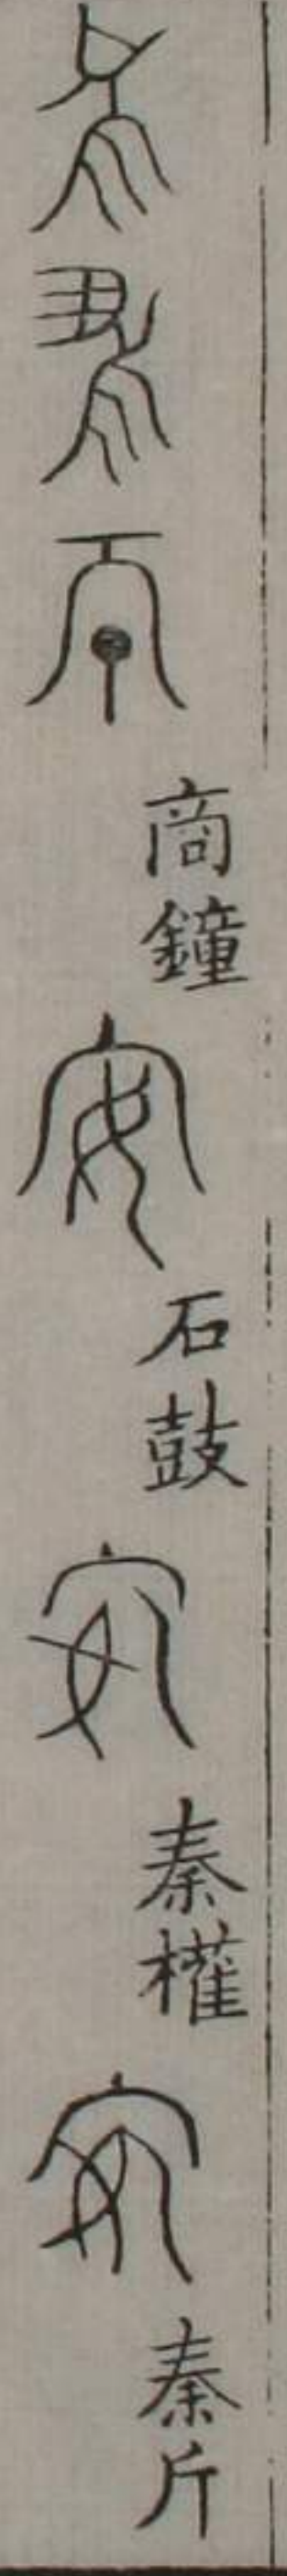 商鐘 安 石鼓 安 秦權 安 秦斤